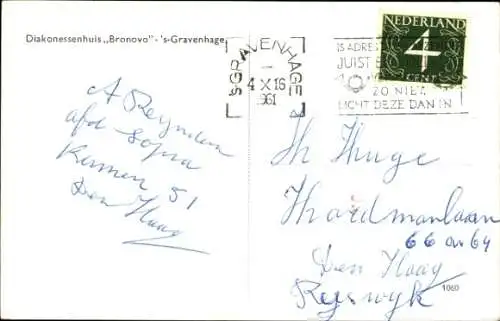 Diakonessenhuis „Bronovo" - 's-Gravenhage
's-GRAVENHAGE
4 X 16
1961
IS ADRES
JUIST
ZO NIET,
LICHT DEZE DAN IN
NEDERLAND
4
CENT
A Reynders
afd Sofia
Kamer 51
Den Haag
Th Thuge
66 64
Den Haag
Reyswyk
1060